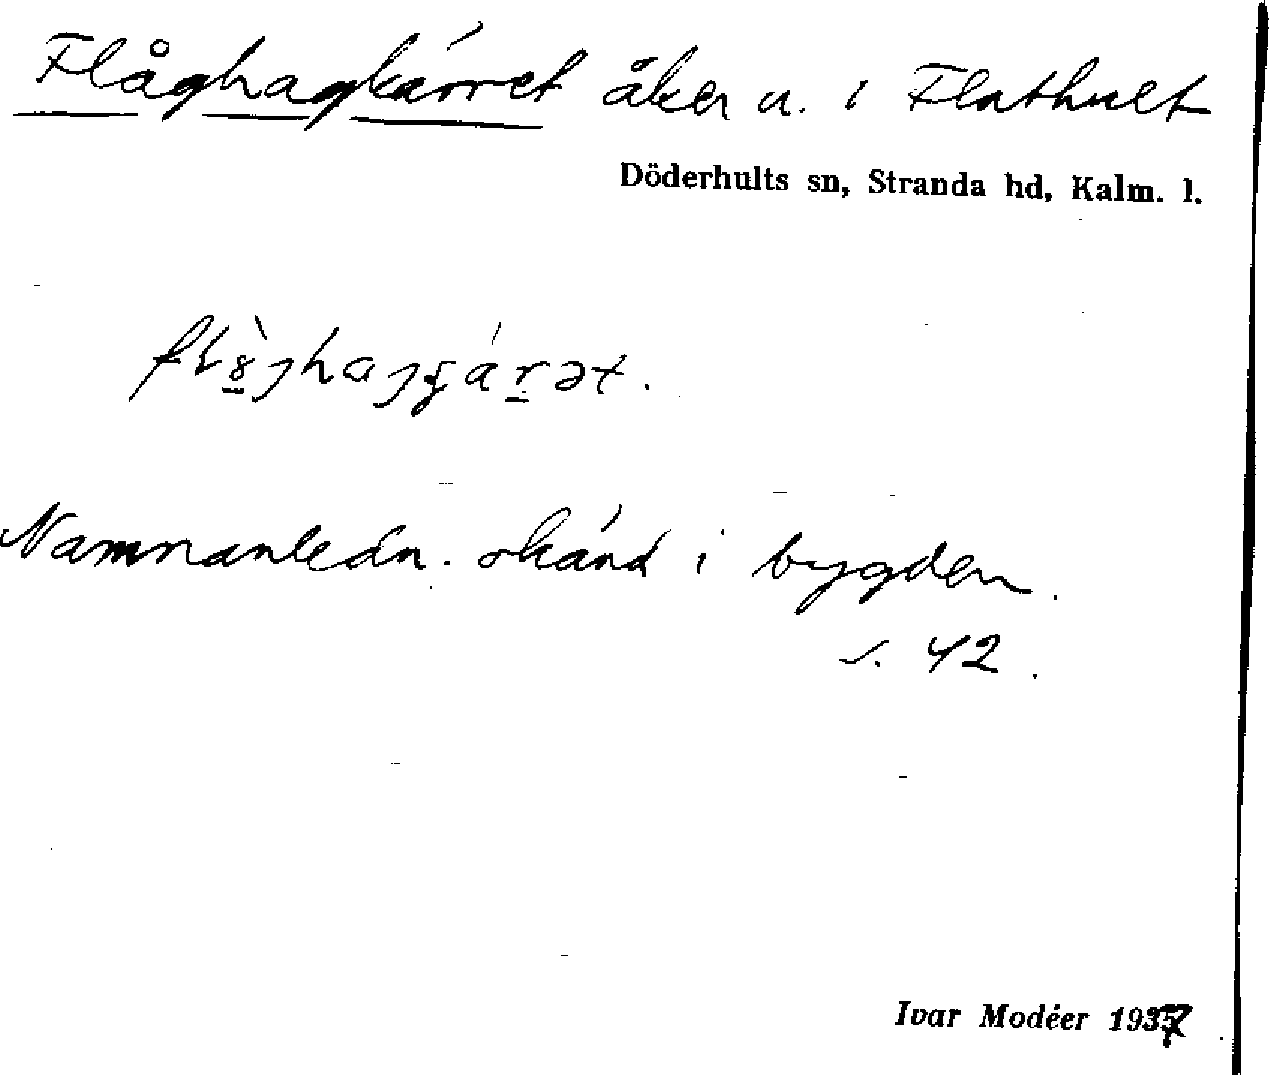 Flåghagkärret åker u. i Flathult
Döderhults sn, Stranda hd, Kalm. l.
Namnanledn. okänd i bygden.
s. 42.
Ivar Modéer 1937